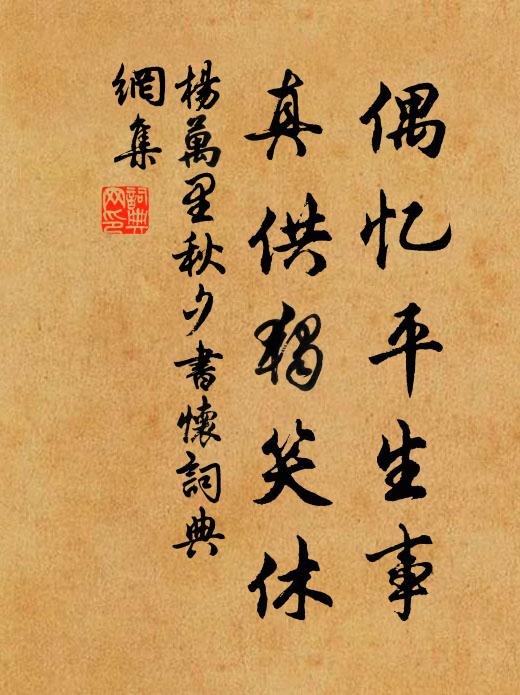 偶忆平生事
真供独笑休
楊萬里秋夕書懷詞典
網集
詞典
网印